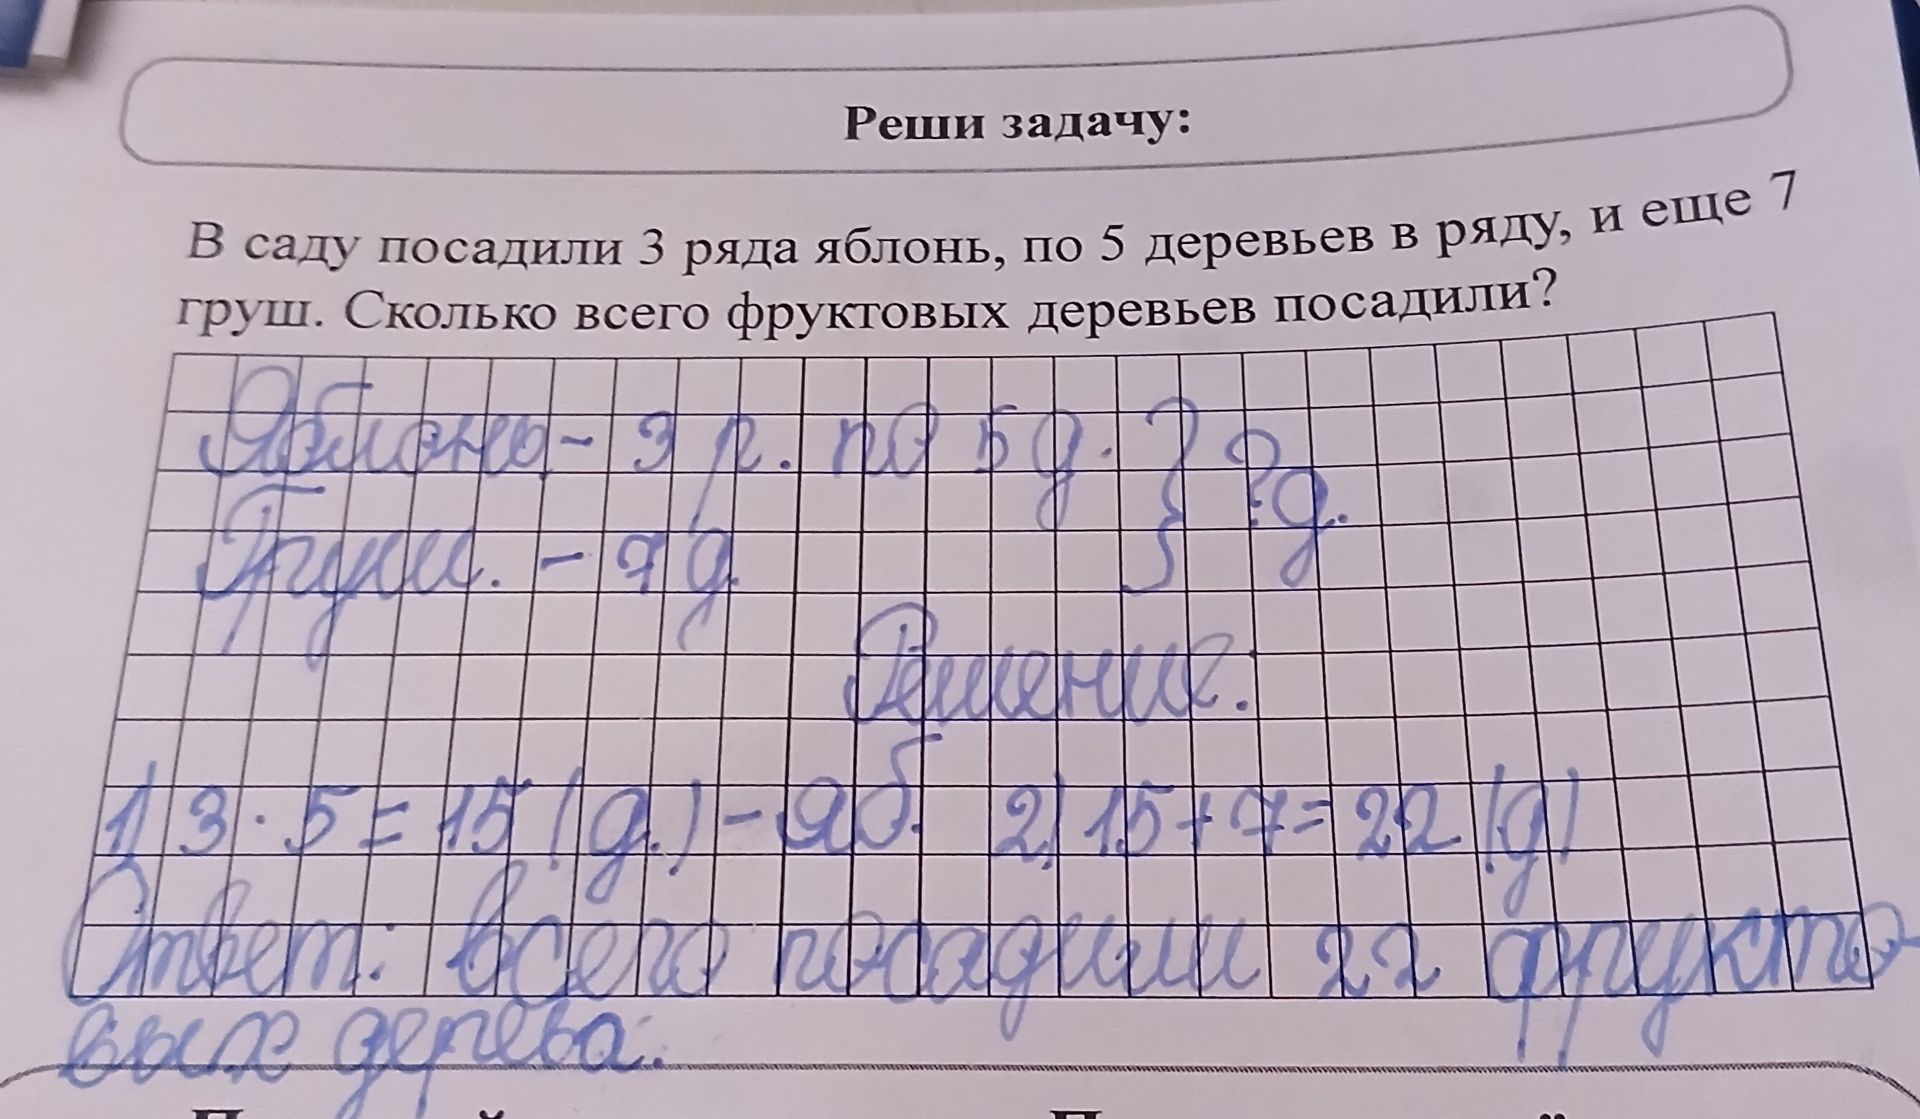 Реши задачу:
В саду посадили 3 ряда яблонь, по 5 деревьев в ряду, и еще 7
груш. Сколько всего фруктовых деревьев посадили?
Яблонь - 3 р. по 5 д. } ? д.
Груш. - 7 д.
Решение.
1) 3 · 5 = 15 (д.) - яб. 2) 15 + 7 = 22 (д)
Ответ: всего посадили 22 фрукто-
вых дерева.